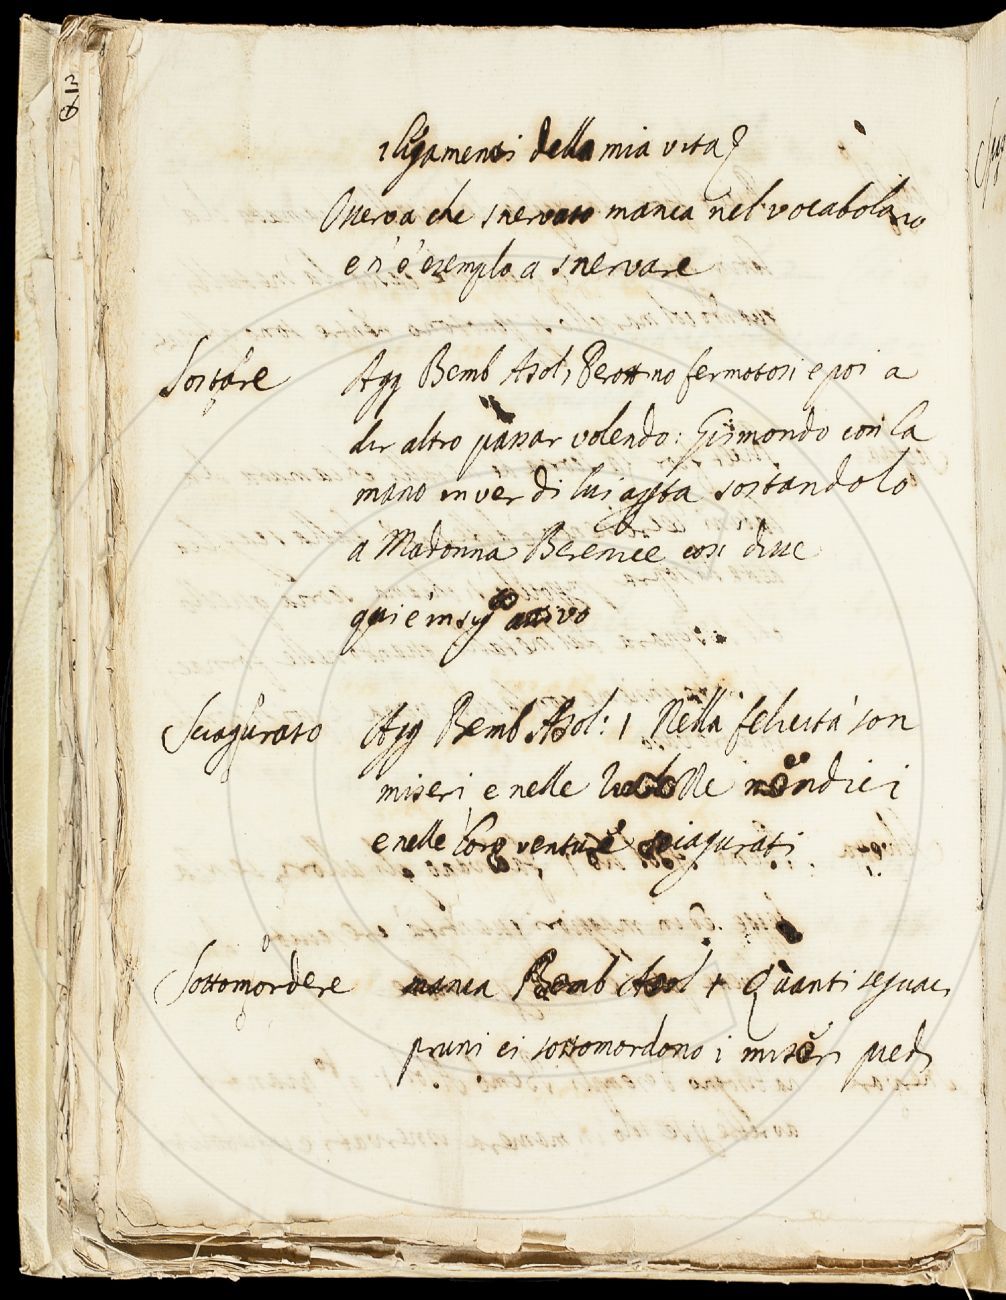 i ligamenti della mia vita
Osserva che snervato manca nel vocabolario
e n'è esempio a snervare
Sostare Agg Bemb Asol, Perottino fermatosi e poi a
dir altro passar volendo: Gismondo con la
mano in ver di lui aperta sostandolo
a Madonna Berenice così disse
qui è in sig.o attivo
Sciagurato Agg Bemb Asol: 1 Nella felicità son
miseri e nelle mendici
e nelle lor venture sciagurati
Sottomordere manca Bemb Asol + Quanti seguaci
pruni ci sottomordono i miseri piedi